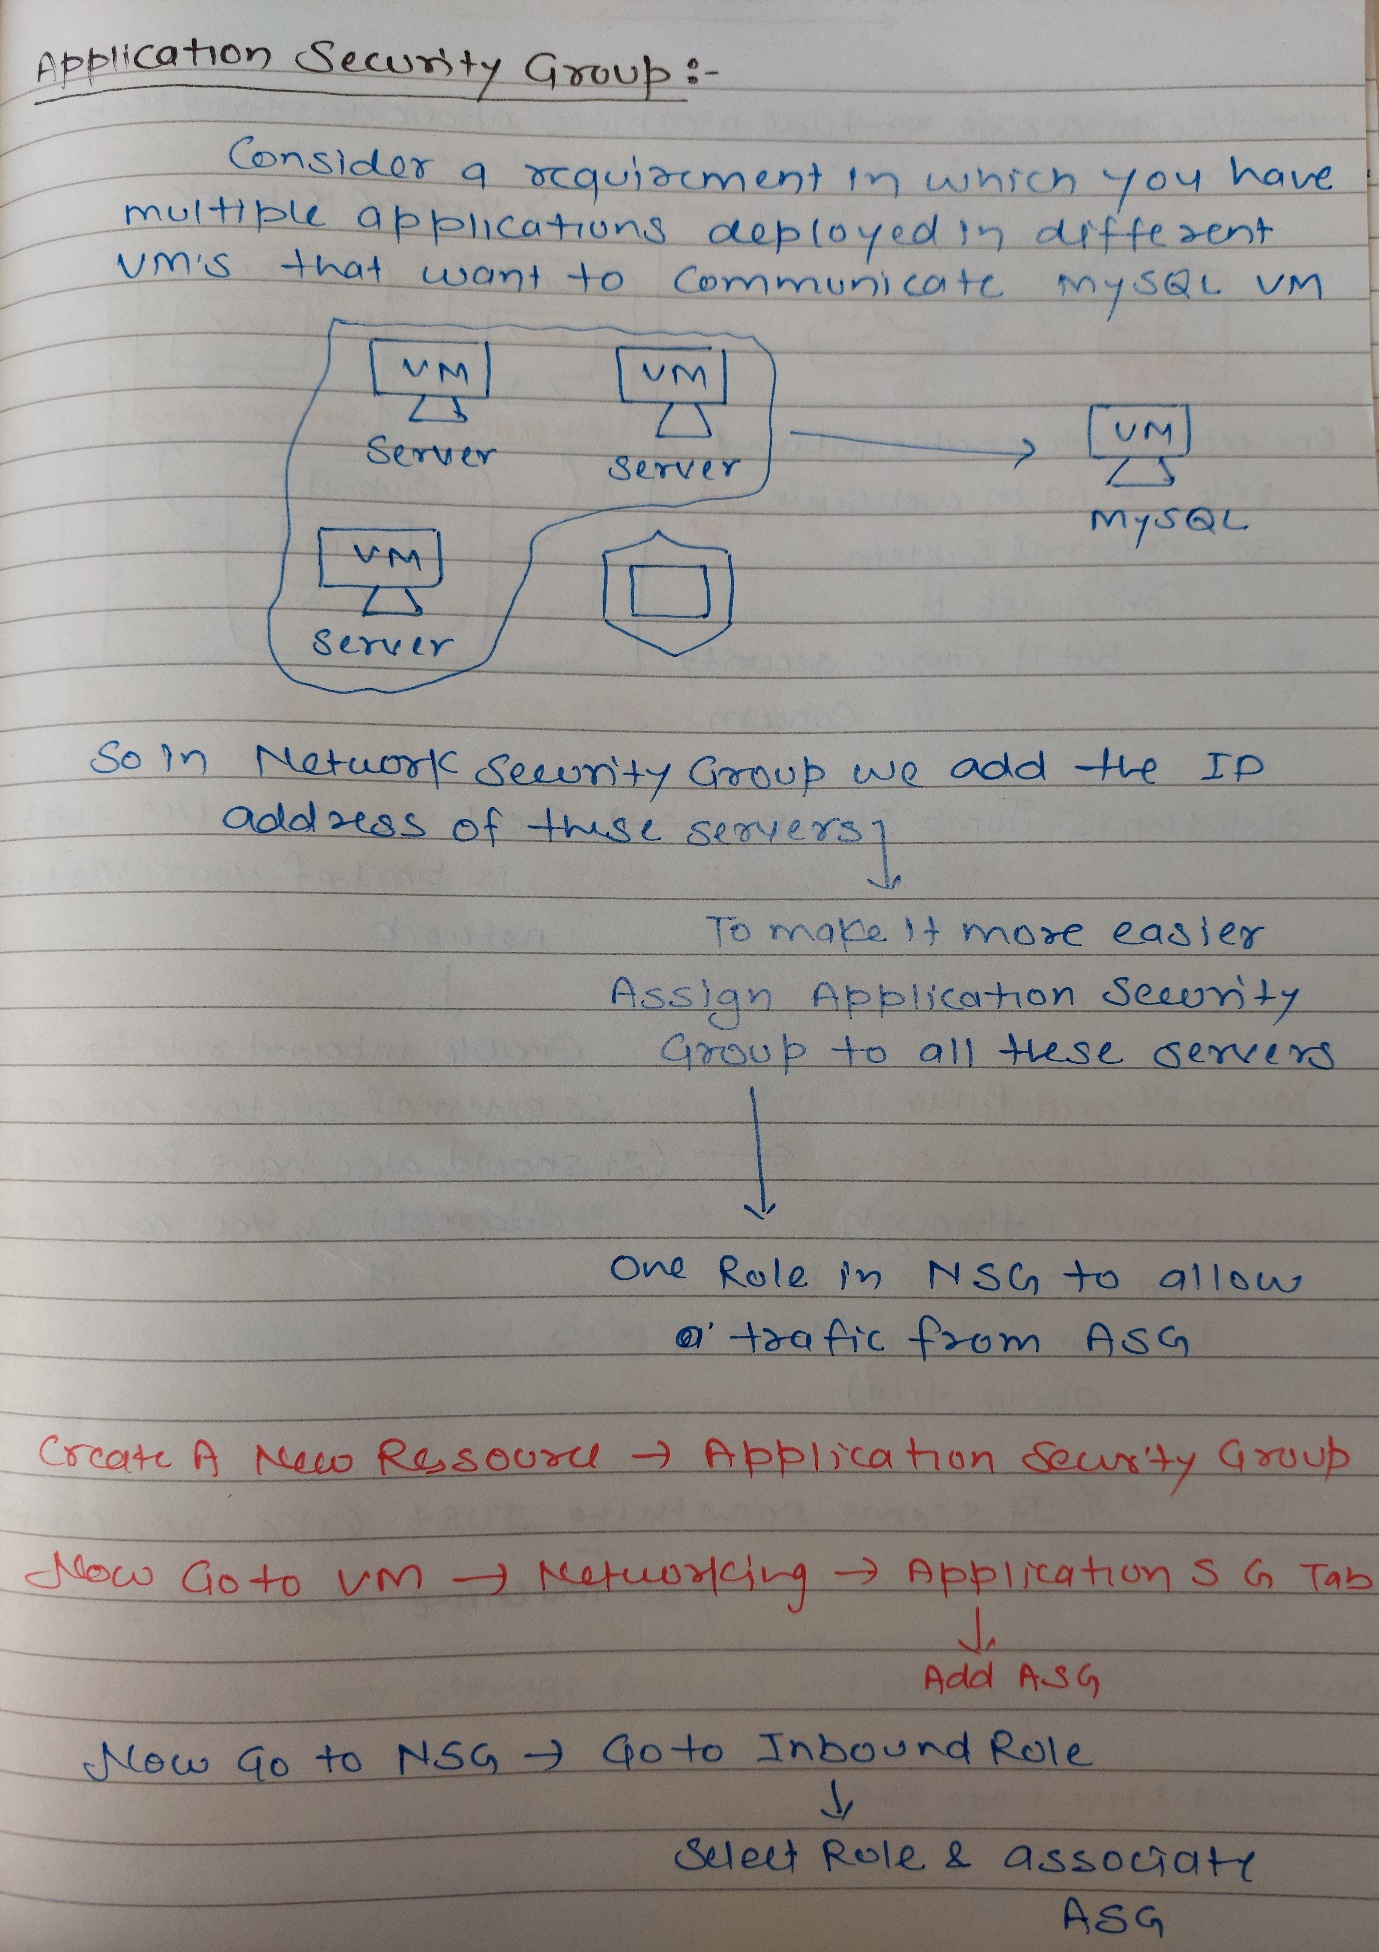 Application Security Group :-
Consider a requirement in which you have
multiple applications deployed in different
VM's that want to communicate MySQL VM
VM
VM
Server
Server
VM
MySQL
VM
Server
So in Network Security Group we add the IP
address of these servers
To make it more easier
Assign Application Security
Group to all these servers
One Role in NSG to allow
trafic from ASG
Create A New Resource → Application Security Group
Now Go to VM → Networking → Application S G Tab
Add ASG
Now Go to NSG → Go to Inbound Role
Select Role & associate
ASG